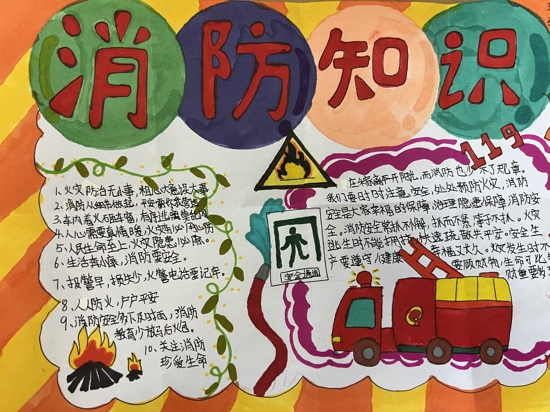 消防知识
119
1、火灾防治无小事,粗心大意误大事
2、消防从细节做起,平安
3、车内着火
4、人人心里要
5、人民生命至上,火灾隐患必除。
6、生活奔小康,消防要安全。
7、报警早,损失少,火警电话要记牢。
8、人人防火,户户平安
9、消防安全多下点雨,消防
教育少放马后火包。
10、关注消防
珍爱生命
安全通道
在家离不开
而消防也少不了规章。
我们每日时时注意安全,处处预防火灾,消防
安全是大家幸福的保障治理隐患保障消防安
全,消防安全常抓不懈,抓而不紧,等于不抓。火灾
逃生时不能拥挤
快速疏散求平安。安全生
产要遵守,
幸福过大人。火灾发生时不
要顾财物,生命可比
财重要